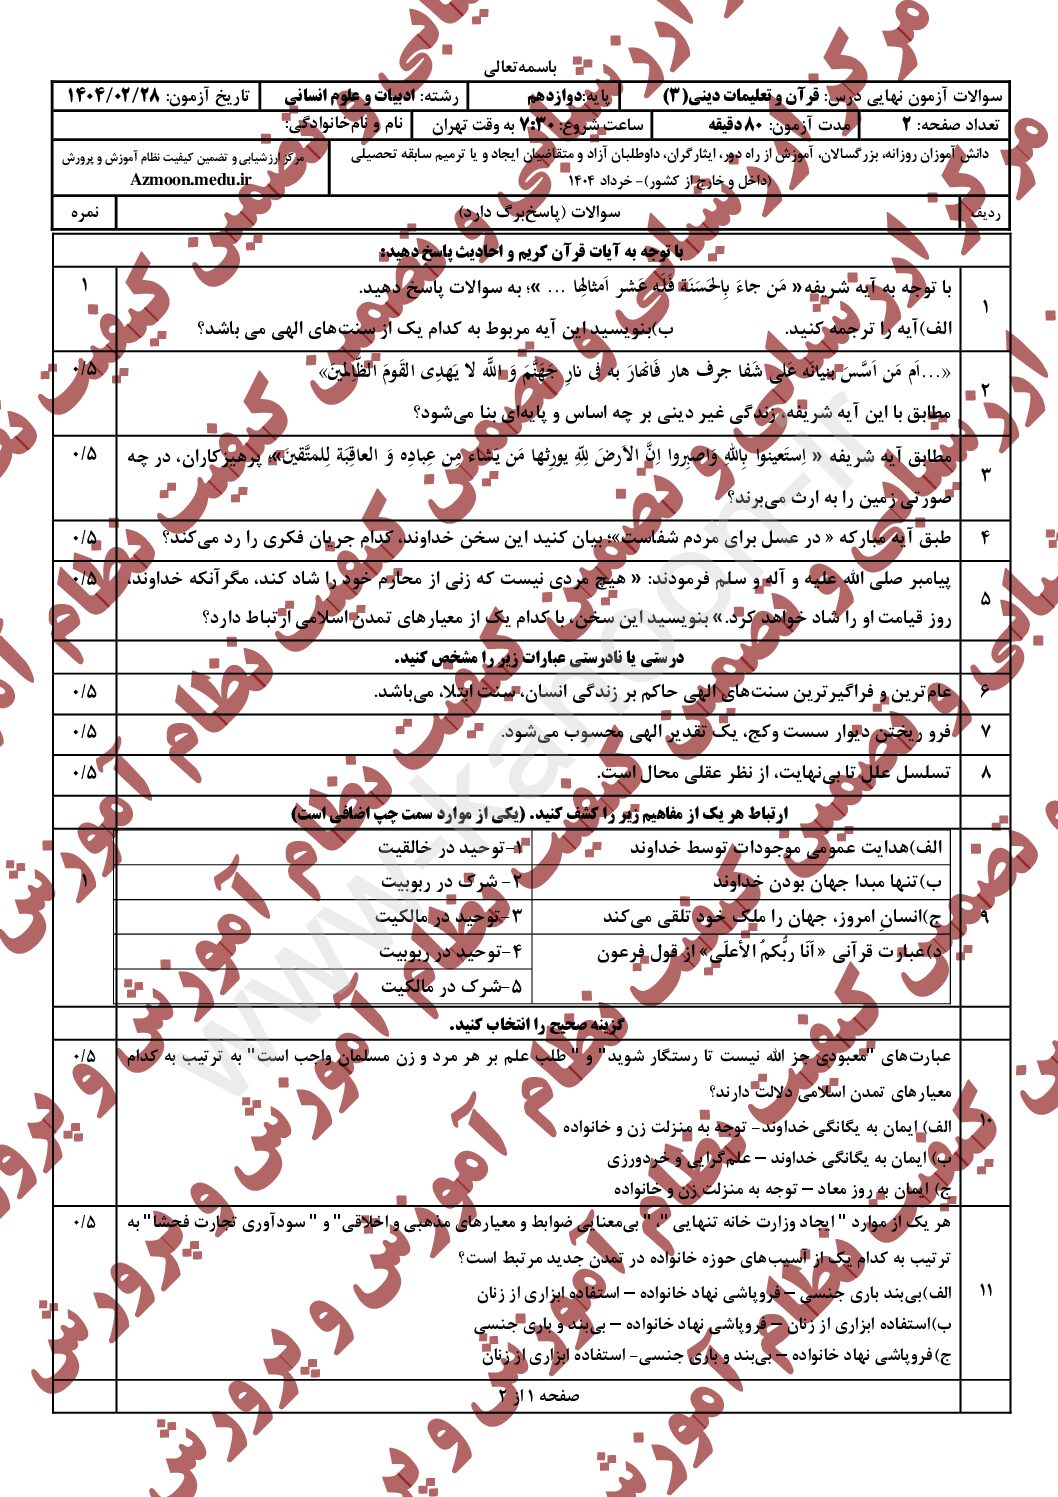 باسمه‌تعالی
سوالات آزمون نهایی درس: قرآن و تعلیمات دینی(۳)
پایه: دوازدهم
رشته: ادبیات و علوم انسانی
تاریخ آزمون: ۱۴۰۴/۰۲/۲۸
تعداد صفحه: ۲
مدت آزمون: ۸۰ دقیقه
ساعت شروع: ۷:۳۰ به وقت تهران
نام و نام‌خانوادگی:
دانش آموزان روزانه، بزرگسالان، آموزش از راه دور، ایثارگران، داوطلبان آزاد و متقاضیان ایجاد و یا ترمیم سابقه تحصیلی
(داخل و خارج از کشور)- خرداد ۱۴۰۴
مرکز ارزشیابی و تضمین کیفیت نظام آموزش و پرورش
Azmoon.medu.ir
ردیف
سوالات (پاسخ‌برگ دارد)
نمره
با توجه به آیات قرآن کریم و احادیث پاسخ دهید:
۱
با توجه به آیه شریفه« مَن جاءَ بِالحَسَنَة فَلَه عَشر اَمثالِها ... »؛ به سوالات پاسخ دهید.
۱
الف)آیه را ترجمه کنید. ب)بنویسید این آیه مربوط به کدام یک از سنت‌های الهی می باشد؟
۲
«...اَم مَن اَسَّسَ بنیانَه عَلی شَفا جرف هار فَانهارَ به فی نارِ جَهَنَّمَ وَ اللّه لا یَهدِی القَومَ الظّالِمینَ»
۰/۵
مطابق با این آیه شریفه، زندگی غیر دینی بر چه اساس و پایه‌ای بنا می‌شود؟
۳
مطابق آیه شریفه « اِستَعینوا بِاللهِ وَاصبِروا اِنَّ الاَرضَ لِلّهِ یورِثها مَن یَشاء مِن عِبادِه وَ العاقِبَة لِلمتَّقینَ»؛ پرهیزکاران، در چه
۰/۵
صورتی زمین را به ارث می‌برند؟
۴
طبق آیه مبارکه « در عسل برای مردم شفاست»؛ بیان کنید این سخن خداوند، کدام جریان فکری را رد می‌کند؟
۰/۵
۵
پیامبر صلی الله علیه و آله و سلم فرمودند: « هیچ مردی نیست که زنی از محارم خود را شاد کند، مگرآنکه خداوند،
۰/۵
روز قیامت او را شاد خواهد کرد.» بنویسید این سخن، با کدام یک از معیارهای تمدن اسلامی ارتباط دارد؟
درستی یا نادرستی عبارات زیر را مشخص کنید.
۶
عام‌ترین و فراگیرترین سنت‌های الهی حاکم بر زندگی انسان، سنت ابتلا، می‌باشد.
۰/۵
۷
فرو ریختن دیوار سست وکج، یک تقدیر الهی محسوب می‌شود.
۰/۵
۸
تسلسل علل تا بی‌نهایت، از نظر عقلی محال است.
۰/۵
ارتباط هر یک از مفاهیم زیر را کشف کنید. (یکی از موارد سمت چپ اضافی است)
۹
الف)هدایت عمومی موجودات توسط خداوند
۱-توحید در خالقیت
ب)تنها مبدا جهان بودن خداوند
۲- شرک در ربوبیت
۱
ج)انسانِ امروز، جهان را ملک خود تلقی می‌کند
۳-توحید در مالکیت
د)عبارت قرآنی «اَنَا رَبُّکمُ الأعلَی» از قول فرعون
۴-توحید در ربوبیت
۵-شرک در مالکیت
گزینه صحیح را انتخاب کنید.
۱۰
عبارت‌های "معبودی جز الله نیست تا رستگار شوید" و " طلب علم بر هر مرد و زن مسلمان واجب است" به ترتیب به کدام
۰/۵
معیارهای تمدن اسلامی دلالت دارند؟
الف) ایمان به یگانگی خداوند- توجه به منزلت زن و خانواده
ب) ایمان به یگانگی خداوند – علم‌گرایی و خردورزی
ج) ایمان به روز معاد – توجه به منزلت زن و خانواده
۱۱
هر یک از موارد " ایجاد وزارت خانه تنهایی "، " بی‌معنایی ضوابط و معیارهای مذهبی و اخلاقی" و " سودآوری تجارت فحشا" به
۰/۵
ترتیب به کدام یک از آسیب‌های حوزه خانواده در تمدن جدید مرتبط است؟
الف)بی‌بند باری جنسی – فروپاشی نهاد خانواده – استفاده ابزاری از زنان
ب)استفاده ابزاری از زنان – فروپاشی نهاد خانواده – بی‌بند و باری جنسی
ج)فروپاشی نهاد خانواده – بی‌بند و باری جنسی- استفاده ابزاری از زنان
صفحه ۱ از ۲
مرکز ارزشیابی و تضمین کیفیت نظام آموزش و پرورش
www.kanoon.ir